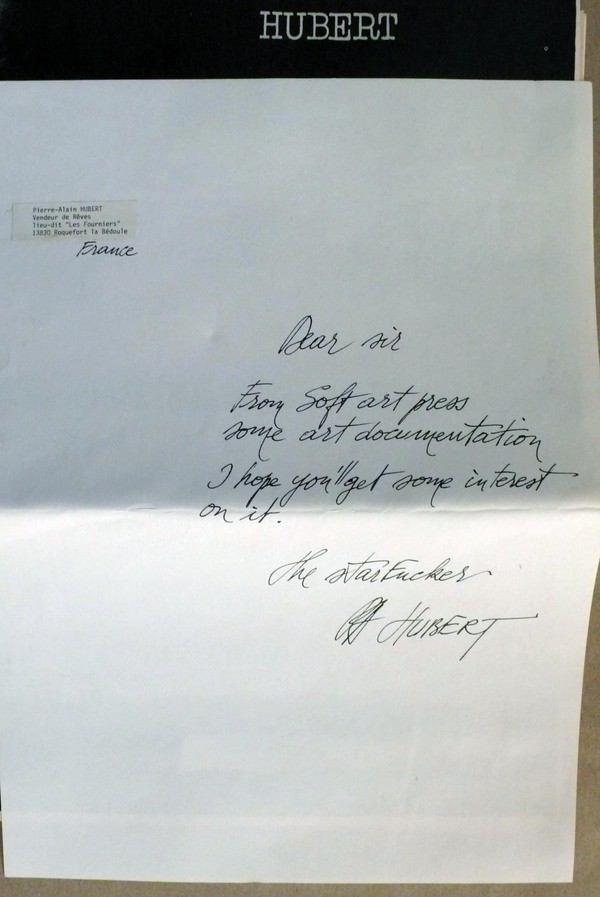 HUBERT
Pierre-Alain HUBERT
Vendeur de Rêves
lieu-dit "Les Fourniers"
13830 Roquefort la Bédoule
France
Dear sir
From Soft art press
some art documentation
I hope you'll get some interest
on it.
the starFucker
PA HUBERT